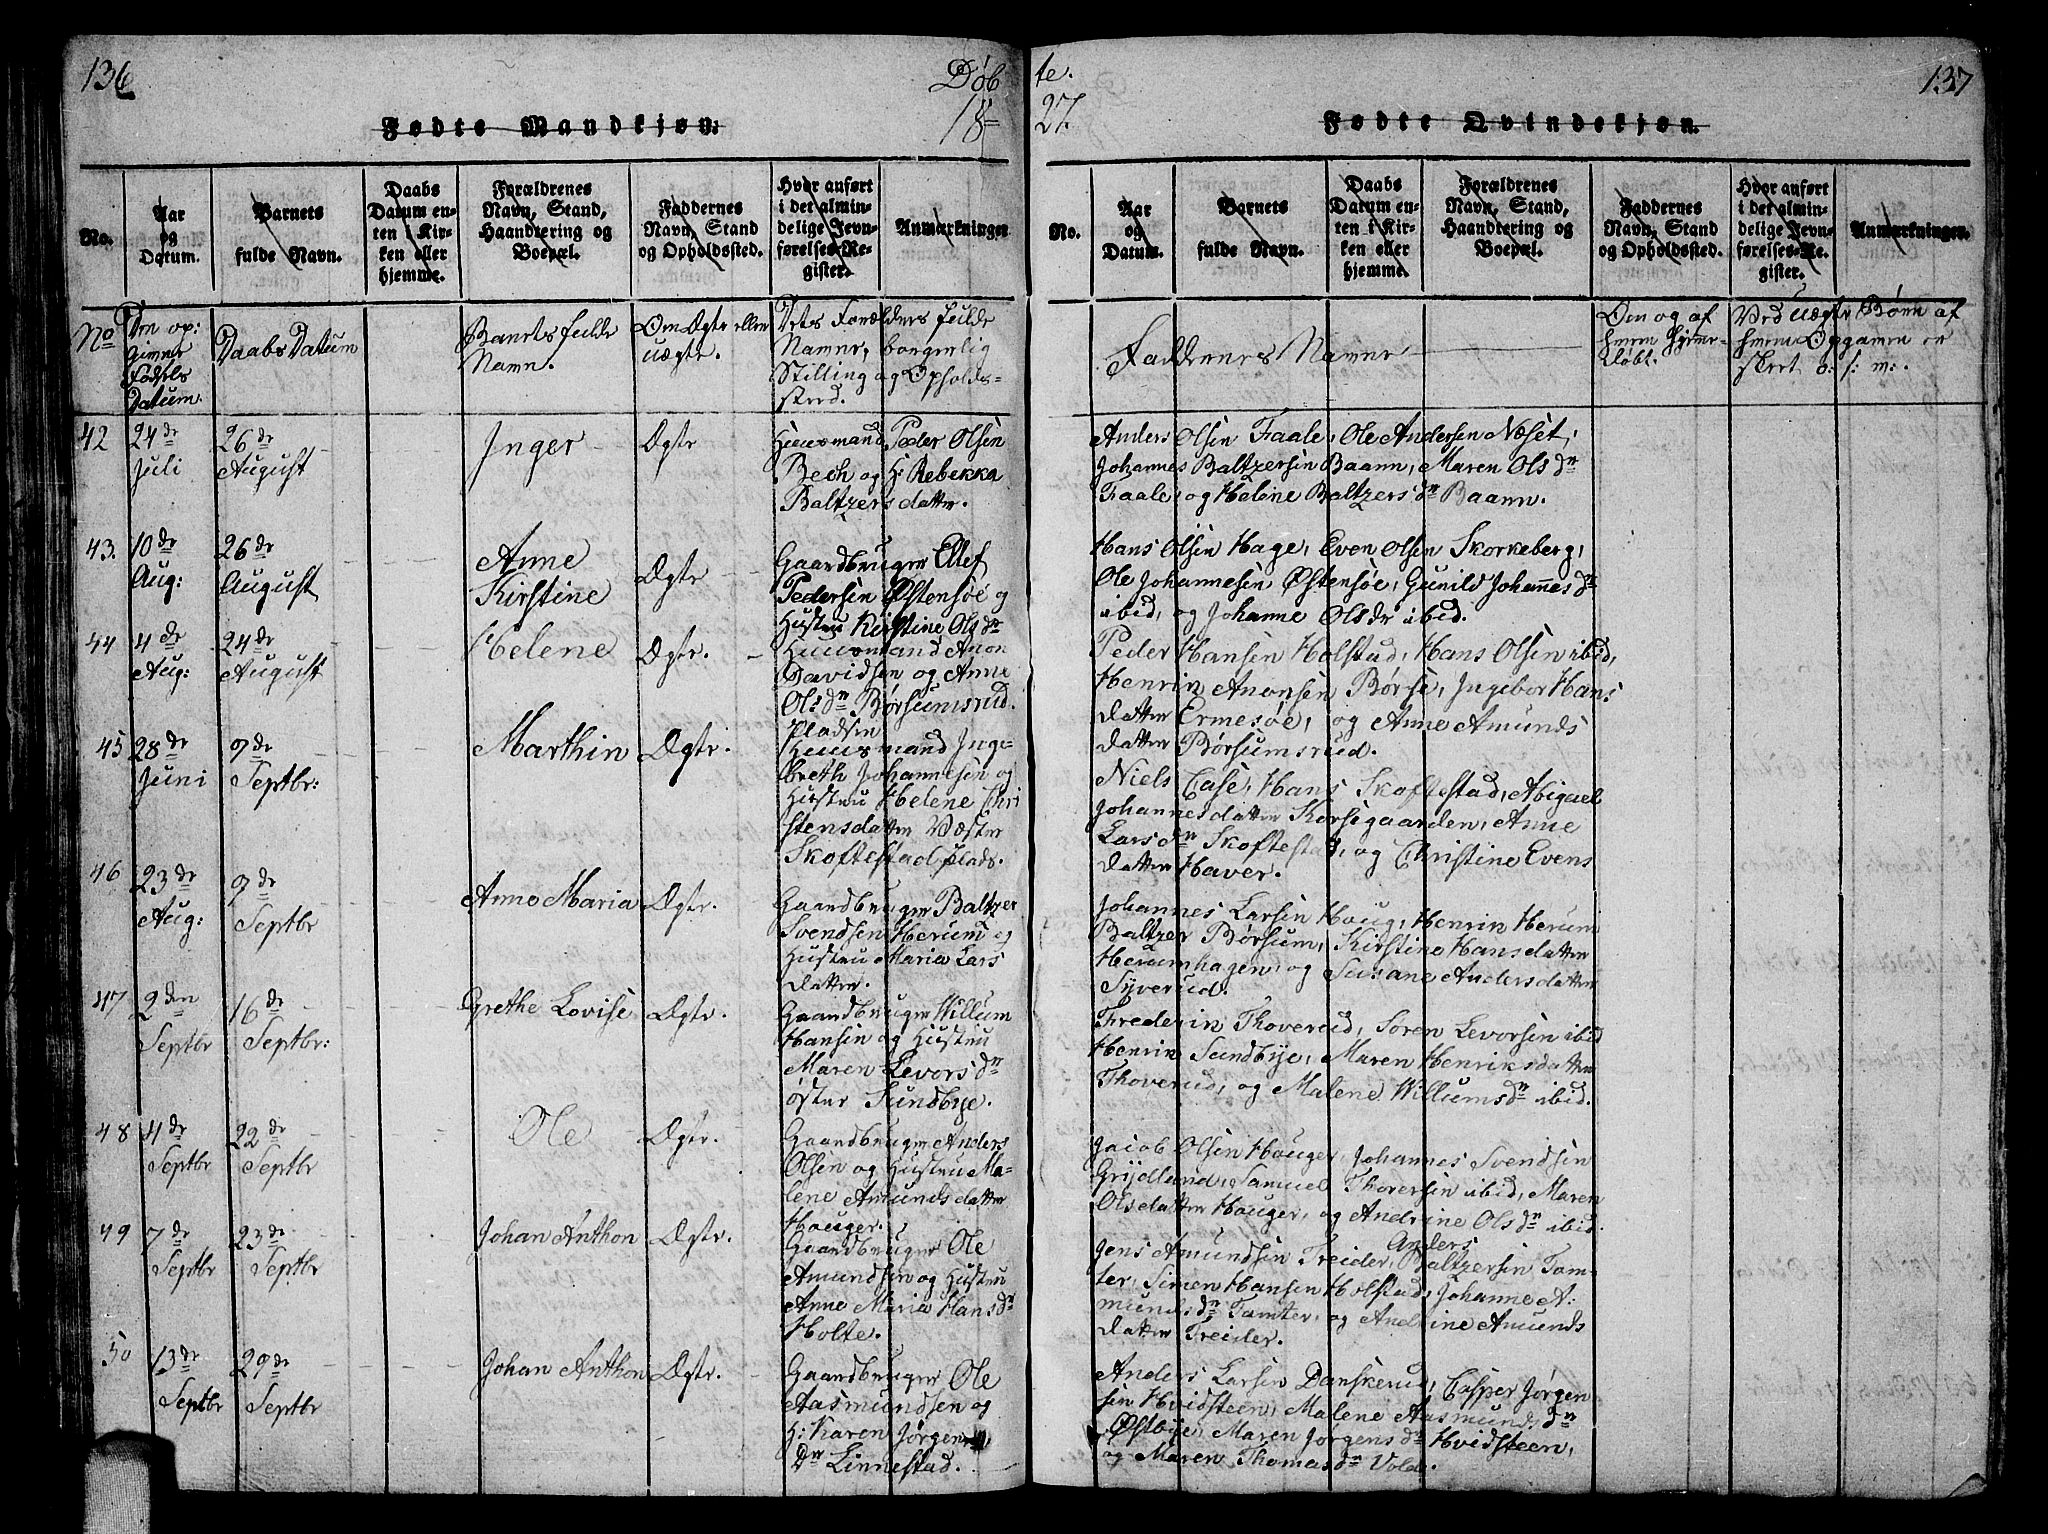 136
Døb
18
Fødte Mandkjøn.
No.
Aar
og
Datum.
Barnets
fulde Navn.
Daabs
Datum en-
ten i Kir-
ken eller
hjemme.
Forældrenes
Navn, Stand,
Haandtering og
Boepæl.
Faddernes
Navn, Stand
og Opholdssted.
Hvor anført
i det almin-
delige Jevn-
førelses-Re-
gister.
Anmærkninger
No
Den op:
Givne
Fødsels
Datum.
Daabs Datum
Barnets fulde
Navn.
Om Ægte eller
uægte.
Dets Forældres fulde
Navne, borgerlig
Stilling og Opholds-
sted.
42
24de
Juli
26de
August
Inger
Ægte
Huusmand Peder Olsen
Bech og H: Rebekka
Baltzersdatter.
43.
10de
Aug:
26de
August
Anne
Kirstine
Ægte
Gaardbruger Ellef
Pedersen Østensøe og
Hustru Kirstine Olsdr
44
4de
Aug:
24de
August
Helene
Ægte.
Huusmand Anon
Davidsen og Anne
Olsdr Børsumsrud.
Pladsen
45
28de
Juni
9de
Septbr:
Marthin
Ægte.
Huusmand Inge-
breth Johannesen og
Hustru Helene Chri
stensdatter Væster
Skoftestad plads.
46
23de
Aug:
9de
Septbr
Anne Maria
Ægte.
Gaardbruger Baltzer
Svendsen Herum og
Hustru Maria Lars
datter.
47
2den
Septbr
16de
Septbr:
Grethe Lovise
Ægte.
Gaardbruger Willum
Hansen og Hustru
Maren Levorsdr
øster Sundbye.
48
4de
Septbr
22de
Septbr
Ole
Ægte.
Gaardbruger Anders
Olsen og Hustru Ma-
lene Amundsdatter
Houger.
49
7de
Septbr
23de
Septbr
Johan Anthon
Ægte.
Gaardbruger Ole
Amundsen og Hustru
Anne Maria Hansdr
Holte.
50
13de
Septbr
29de
Septbr
Johan Anthon
Ægte.
Gaardbruger Ole
Aasmundsen og
H: Karen Jørgen
dr Linnestad.
te.
27.
137
Fødte Qvindekjøn.
No.
Aar
og
Datum.
Barnets
fulde Navn.
Daabs
Datum en-
ten i Kir-
ken eller
hjemme.
Forældrenes
Navn, Stand,
Haandtering og
Boepæl.
Faddernes
Navn, Stand
og Opholdssted.
Hvor anført
i det almin-
delige Jevn-
førelses-Re-
gister.
Anmærkninger.
Faddernes Navne
Om og af
hvem hjemme-
døbt.
Ved uægte Børn af
hvem Opgaven er
skeet o: s: m:.
Anders Olsen Faale, Ole Andersen Næset,
Johannes Baltzersen Baann, Maren Olsdr
Faale, og Helene Baltzersdr Baann.
Hans Olsen Hage, Even Olsen Skorkeberg,
Ole Johannesen Østensøe, Gunild Johannesdr
ibid, og Johanne Olsdr ibid.
Peder Hansen Holstad, Hans Olsen ibid,
Henrik Anonsen Børse, Ingebor Hans
datter Ermesøe, og Anne Amunds
datter Børsumsrud.
Niels Case, Hans Skoftestad, Abigael
Johannesdatter Korsegaarden, Anne
Larsdr Skoftestad, og Christine Evens
datter Haver.
Johannes Larsen Houg, Henrik Herum
Baltzer Børsum, Kirstine Hansdatter
Herumhagen, og Susane Andersdatter
Syverud.
Frederik Thoverud, Søren Levorsen ibid
Henrik Sundbye, Maren Henriksdatter
Thoverud, og Malene Willumsdr ibid.
Jacob Olsen Houger, Johannes Svendsen
Grydland, Samuel Thoresen ibid, Maren
Olsdatter Houger, og Andrine Olsdr ibid.
Anders
Jens Amundsen Freider, Baltzersen Tom-
ter, Simen Hansen Holstad, Johanne A:
mundsdr Tomter, og Andrine Amunds
datter Freider.
Anders Larsen Danskerud, Casper Jørgen
sen Hvidsteen, Malene Aasmundsdr
Østbye, Maren Jørgensdr Hvidsteen,
og Maren Thomasdr Volde.